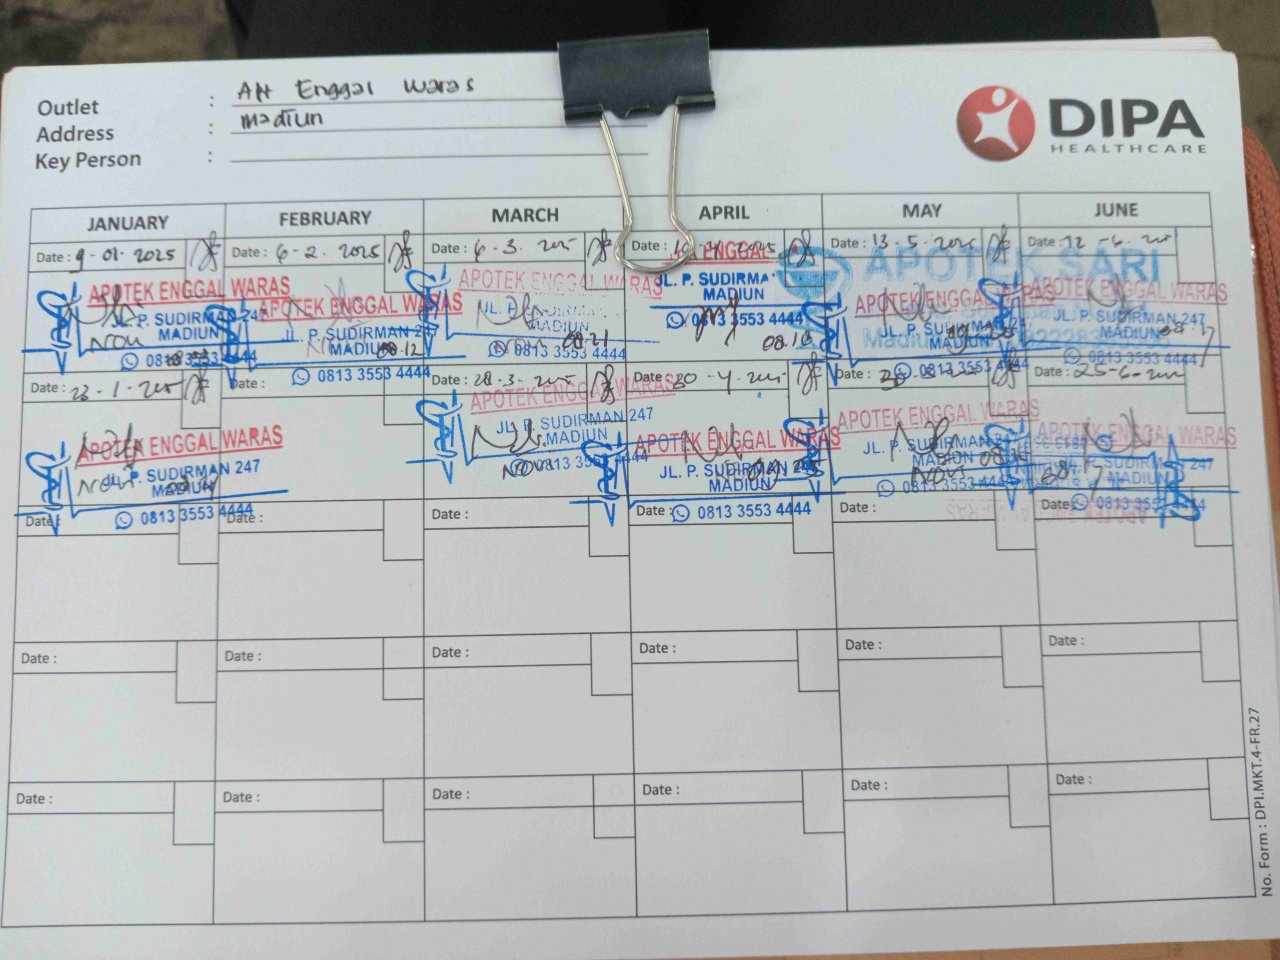 Outlet : Apt Enggal Waras
Address : Madiun
Key Person :
DIPA
HEALTHCARE
JANUARY FEBRUARY MARCH APRIL MAY JUNE
Date : 9-01-2025 Date : 6-2-2025 Date : 6-3-2025 Date : Date : 13-5-2025 Date : 12-6-2025
APOTEK SARI
APOTEK ENGGAL WARAS APOTEK ENGGAL WARAS APOTEK ENGGAL WARAS ENGGAL APOTEK ENGGAL WARAS
JL. P. SUDIRMAN 247 JL. P. SUDIRMAN 247 JL. P. SUDIRMAN JL. P. SUDIRMAN
MADIUN MADIUN MADIUN MADIUN MADIUN MADIUN
Novi 08.12 Novi 08.21 08.16 08.17
0813 3553 4444 0813 3553 4444 0813 3553 4444 0813 3553 4444 0813 3553 4444 0813 3553 4444
Date : 23-1-2025 Date : Date : 28-3-2025 Date : 30-4-2025 Date : Date : 25-6-2025
APOTEK ENGGAL WARAS APOTEK ENGGAL WARAS APOTEK ENGGAL WARAS APOTEK ENGGAL WARAS
JL. P. SUDIRMAN 247 JL. P. SUDIRMAN 247 JL. P. SUDIRMAN 247 JL. P. SUDIRMAN 247
MADIUN MADIUN MADIUN MADIUN
Novi Novi Novi
0813 3553 4444 0813 3553 4444 0813 3553 4444 0813 3553 4444 0813 3553 4444
Date : Date : Date : Date : Date : Date :
Date : Date : Date : Date : Date : Date :
Date : Date : Date : Date : Date : Date :
No. Form : DPI.MKT.4-FR.27